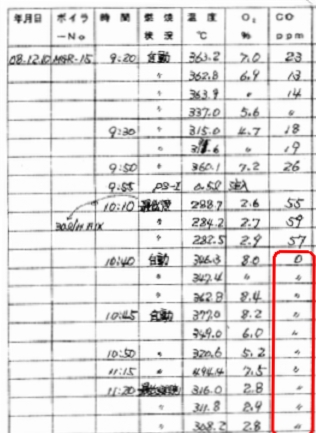 年月日 ボイラ-No 時間 燃焼状況 温度℃ O₂% CO ppm
08.12.10 MGR-15 9:20 自動 363.2 7.0 23
〃 362.8 6.9 13
〃 363.9 〃 14
〃 337.0 5.6 〃
9:30 〃 315.0 4.7 18
〃 〃 19
9:50 〃 360.1 7.2 26
9:55 PS-I 0.5ℓ 注入
10:10 288.7 2.6 55
〃 284.2 2.7 59
〃 282.5 2.9 57
10:40 自動 346.3 8.0 0
〃 342.4 〃 〃
〃 362.8 8.4 〃
10:45 自動 377.0 8.2 〃
〃 349.0 6.0 〃
10:50 〃 320.6 5.2 〃
11:15 〃 494.4 7.5 〃
11:20 316.0 2.8 〃
〃 311.8 2.9 〃
〃 308.2 2.8 〃